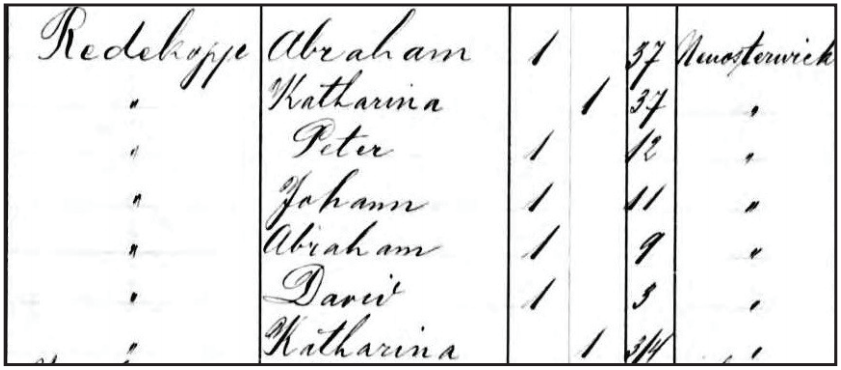 Redekopp Abraham 1 37 Neuosterwick
" Katharina 1 37 "
" Peter 1 12 "
" Johann 1 11 "
" Abraham 1 9 "
" David 1 3 "
" Katharina 1 3/4 "